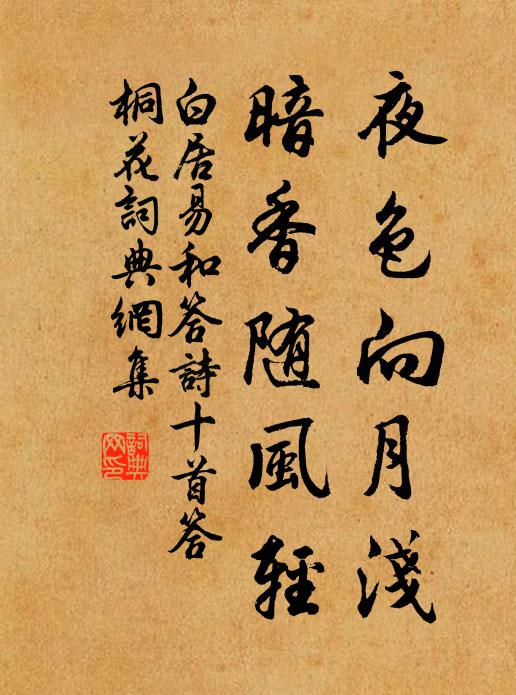 夜色向月淺
暗香随風輕
白居易和答詩十首答
桐花詞典網集
詞典网印